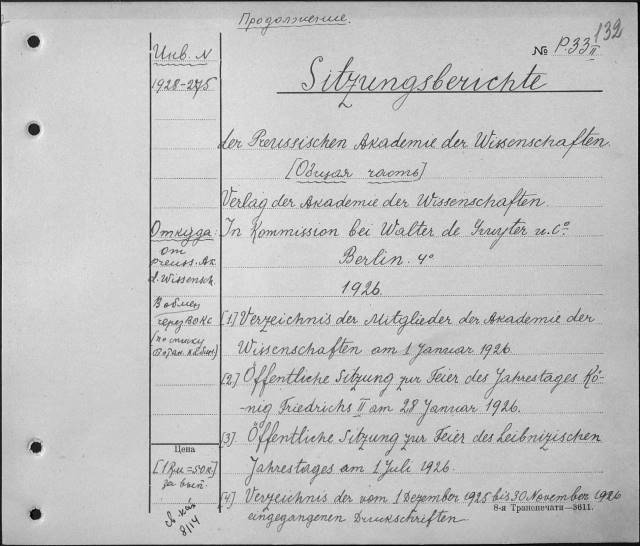 Продолжение.
132
№ P.33 II
Инв. N
1928-275
Sitzungsberichte
der Preussischen Akademie der Wissenschaften.
[Общая часть]
Verlag der Akademie der Wissenschaften.
Откуда:
In Kommission bei Walter de Gruyter u. Co.
от
Preuss. Ak.
d. Wissensch.
Berlin. 4°
1926.
В обмен
через ВОКС
(по списку
Ботан. кабин.)
[1] Verzeichnis der Mitglieder der Akademie der
Wissenschaften am 1 Januar 1926
[2] Öffentliche Sitzung zur Feier des Jahrestages Kö-
-nig Friedrichs II am 28 Januar 1926.
[3]. Öffentliche Sitzung zur Feier des Leibnizischen
Jahrestages am 1 Juli 1926.
Цена
за вып.
[4] Verzeichnis der vom 1 Dezember 1925 bis 30 November 1926
eingegangenen Druckschriften.
8/14
8-я Транспечати—3611.